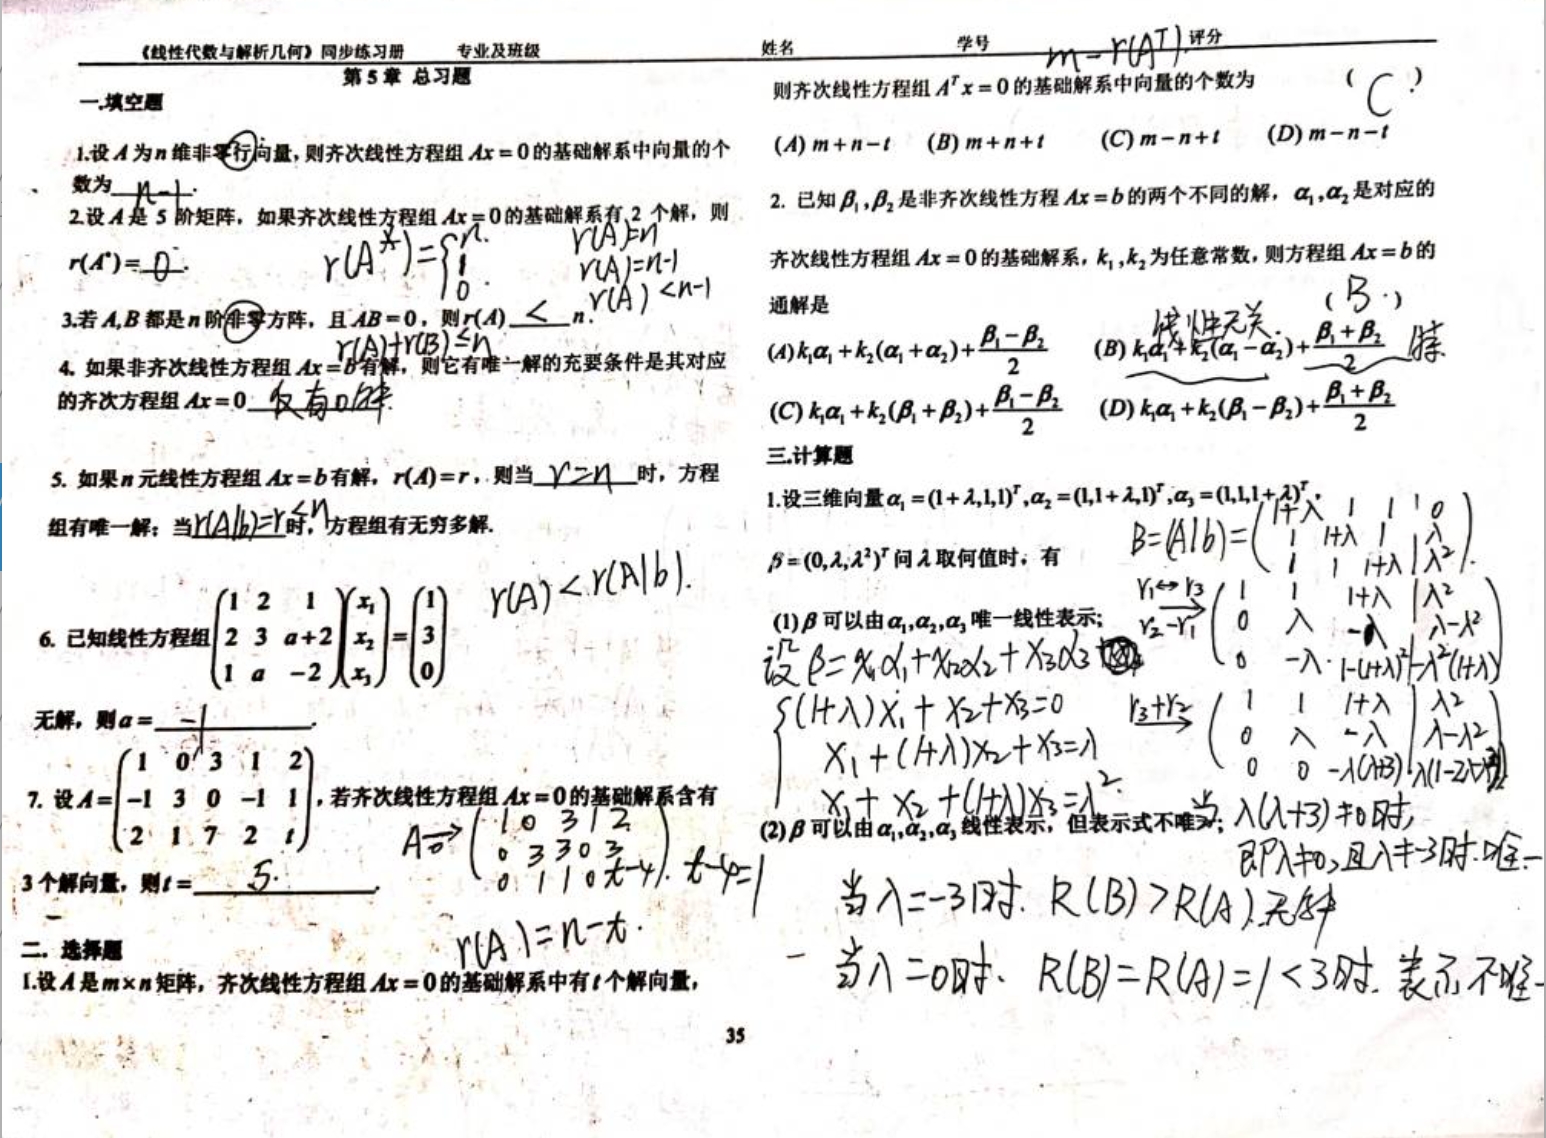 《线性代数与解析几何》同步练习册 专业及班级 姓名 学号 评分
第 5 章 总习题
一.填空题
1.设 A 为 n 维非零行向量，则齐次线性方程组 Ax = 0 的基础解系中向量的个
数为 n-1 .
2.设 A 是 5 阶矩阵，如果齐次线性方程组 Ax = 0 的基础解系有 2 个解，则
r(A*) = 0 .
r(A*) = { n. r(A)=n
1 r(A)=n-1
0. r(A)<n-1
3.若 A,B 都是 n 阶非零方阵，且 AB = 0，则 r(A) < n.
r(A)+r(B)≤n
4. 如果非齐次线性方程组 Ax = b 有解，则它有唯一解的充要条件是其对应
的齐次方程组 Ax = 0 仅有0解.
5. 如果 n 元线性方程组 Ax = b 有解，r(A) = r，则当 r=n 时，方程
组有唯一解；当 r(A|b)=r<n 时，方程组有无穷多解.
r(A)<r(A|b).
6. 已知线性方程组 (1 2 1; 2 3 a+2; 1 a -2)(x₁; x₂; x₃) = (1; 3; 0)
无解，则 a = -1 .
7. 设 A = (1 0 3 1 2; -1 3 0 -1 1; 2 1 7 2 t)，若齐次线性方程组 Ax = 0 的基础解系含有
A→ (1 0 3 1 2; 0 3 3 0 3; 0 1 1 0 t-4). t-4=1
3 个解向量，则 t = 5. .
r(A)=n-t.
二. 选择题
1.设 A 是 m×n 矩阵，齐次线性方程组 Ax = 0 的基础解系中有 t 个解向量，
m-r(Aᵀ)
则齐次线性方程组 Aᵀx = 0 的基础解系中向量的个数为 ( C. )
(A) m+n-t (B) m+n+t (C) m-n+t (D) m-n-t
2. 已知 β₁,β₂ 是非齐次线性方程 Ax = b 的两个不同的解，α₁,α₂ 是对应的
齐次线性方程组 Ax = 0 的基础解系，k₁,k₂ 为任意常数，则方程组 Ax = b 的
通解是 ( B. )
线性无关.
(A) k₁α₁+k₂(α₁+α₂)+(β₁-β₂)/2 (B) k₁α₁+k₂(α₁-α₂)+(β₁+β₂)/2 特
(C) k₁α₁+k₂(β₁+β₂)+(β₁-β₂)/2 (D) k₁α₁+k₂(β₁-β₂)+(β₁+β₂)/2
三.计算题
1.设三维向量 α₁ = (1+λ,1,1)ᵀ, α₂ = (1,1+λ,1)ᵀ, α₃ = (1,1,1+λ)ᵀ,
β = (0,λ,λ²)ᵀ 问 λ 取何值时，有
B=(A|b)= (1+λ 1 1 | 0; 1 1+λ 1 | λ; 1 1 1+λ | λ²).
(1) β 可以由 α₁,α₂,α₃ 唯一线性表示;
r₁↔r₃ r₂-r₁ → (1 1 1+λ | λ²; 0 λ -λ | λ-λ²; 0 -λ 1-(1+λ)² | -λ²(1+λ))
设 β=x₁α₁+x₂α₂+x₃α₃
{ (1+λ)x₁+x₂+x₃=0
x₁+(1+λ)x₂+x₃=λ
x₁+x₂+(1+λ)x₃=λ².
r₃+r₂ → (1 1 1+λ | λ²; 0 λ -λ | λ-λ²; 0 0 -λ(λ+3) | λ(1-2λ-λ²))
(2) β 可以由 α₁,α₂,α₃ 线性表示，但表示式不唯一;
当 λ(λ+3)≠0时,
即λ≠0,且λ≠-3时.唯一
当λ=-3时. R(B)>R(A).无解
当λ=0时、R(B)=R(A)=1<3时.表示不唯一
35